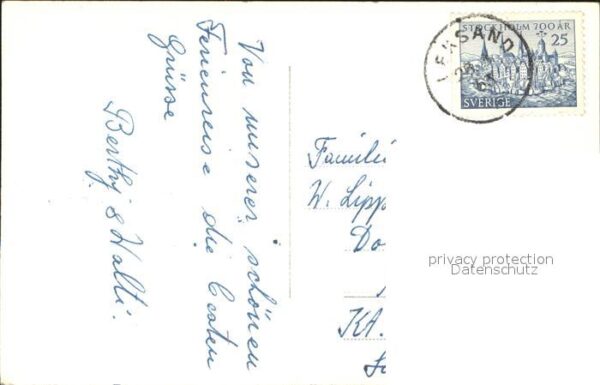 Von unserer schönen
Ferienreise die besten
Grüsse
Berthy & Walti.
STOCKHOLM 700 ÅR
25
SVERIGE
LEKSAND
Famili
W. Lipp
Do
KA.
privacy protection
Datenschutz